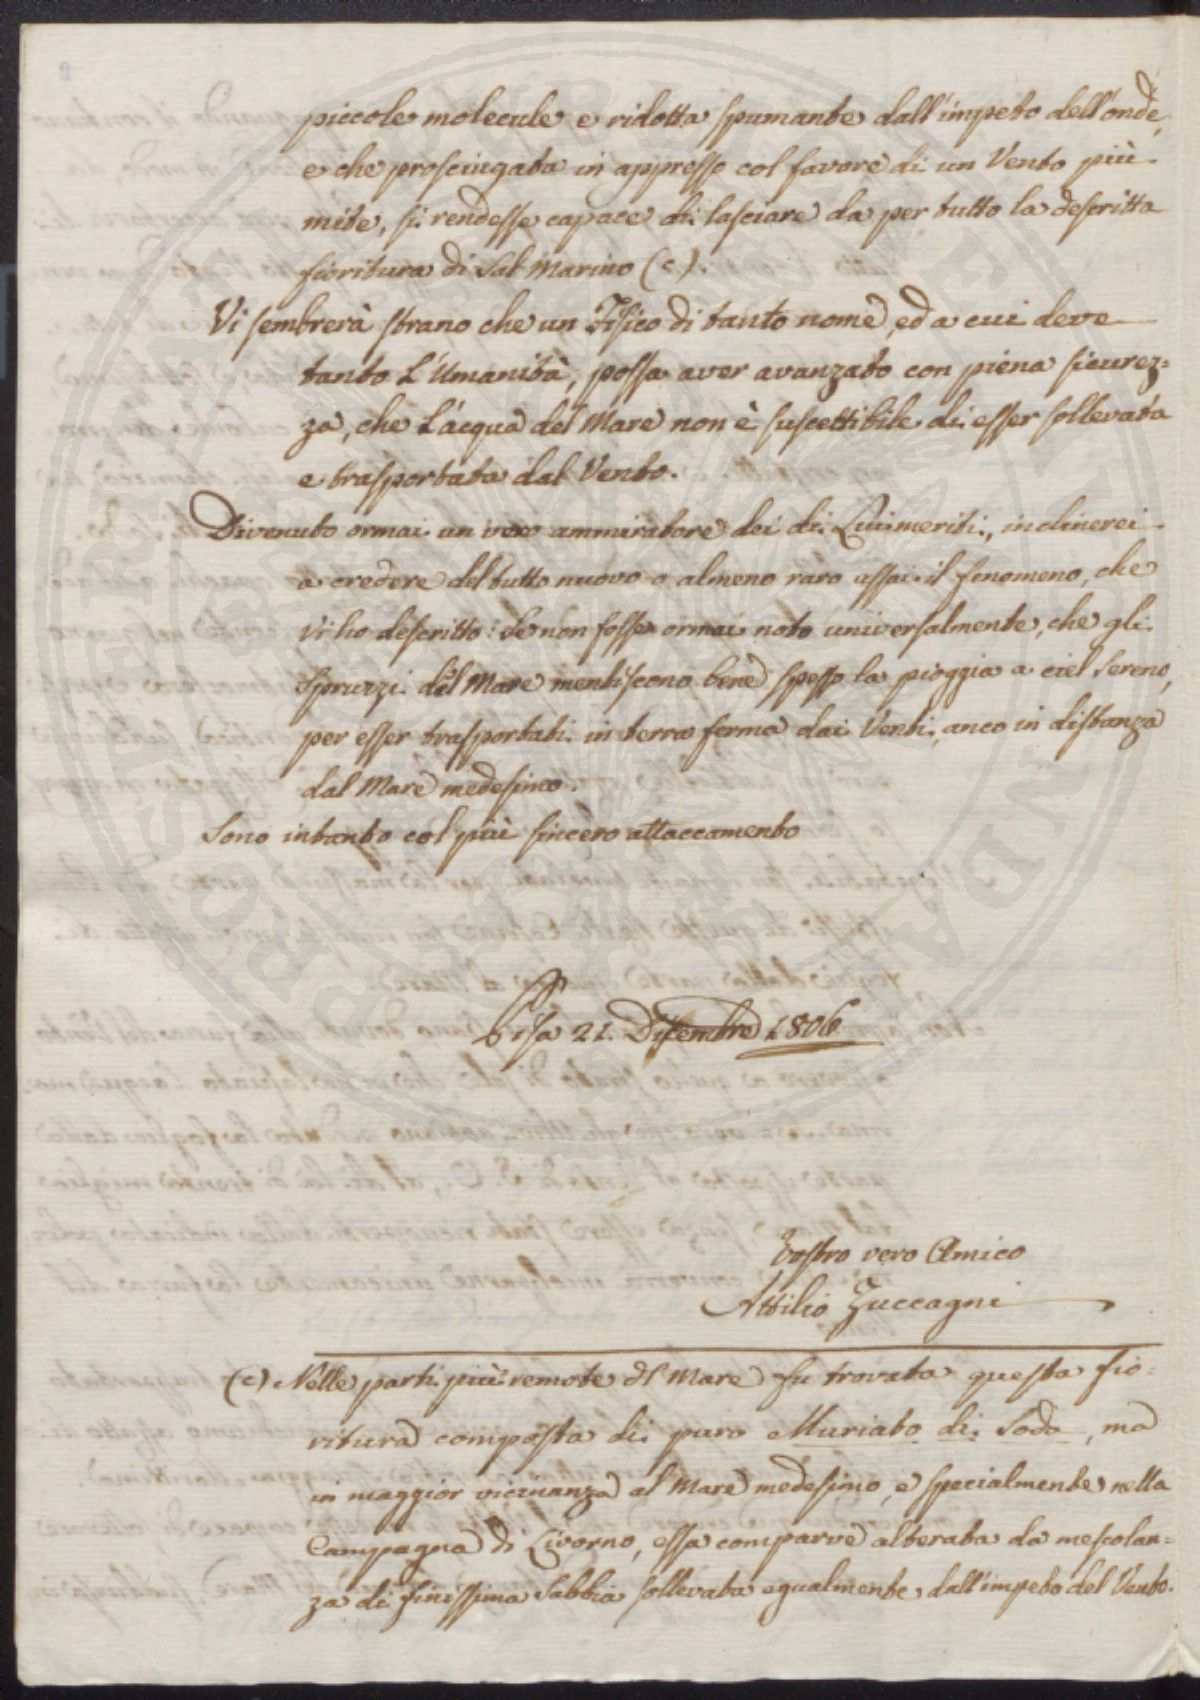 piccole molecule e ridotta spumante dall'impeto dell'onde,
e che prosciugata in appresso col favore di un Vento più
mite, si rendesse capace di lasciare da per tutto la descritta
fioritura di Sal Marino (c).
Vi sembrerà strano che un Fisico di tanto nome, ed a cui deve
tanto L'Umanità, possa aver avanzato con piena sicurez=
za, che L'acqua del Mare non è suscettibile di esser sollevata
e trasportata dal Vento.
Divenuto ormai un vero ammiratore dei di Lui meriti, inclinerei
a credere del tutto nuovo o almeno raro assai il fenomeno, che
vi ho descritto: se non fosse ormai noto universalmente, che gli
Spruzzi del Mare mentiscono bene spesso la pioggia a ciel sereno,
per esser trasportati in terra ferma dai Venti, anco in distanza
dal Mare medesimo.
Sono intanto col più sincero attaccamento
Pisa 21. Dicembre 1806
Vostro vero Amico
Attilio Zuccagni
(c) Nelle parti più remote del Mare fu trovata questa fio=
ritura composta di puro Muriato di Soda, ma
in maggior vicinanza al Mare medesimo, e specialmente nella
Campagna di Livorno, essa comparve alterata da mescolan=
za di finissima Sabbia sollevata egualmente dall'impeto del Vento.